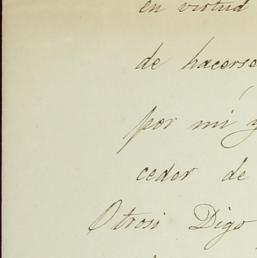 en virtud
de hacerse
por mí y
ceder de
Otrosi Digo